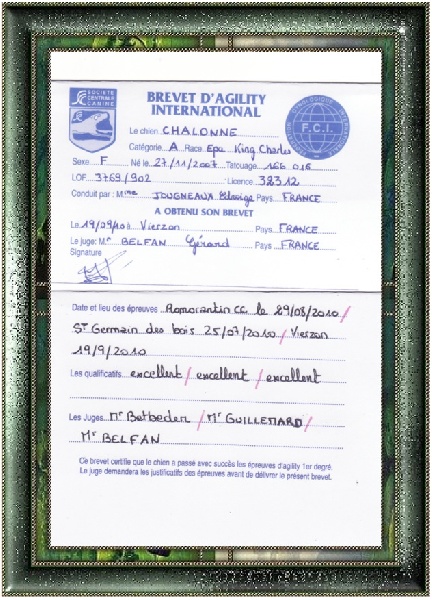 SOCIETE
CENTRALE
CANINE
BREVET D'AGILITY
INTERNATIONAL
F.C.I.
Le chien CHALONNE
Catégorie A Race Epa King Charles
Sexe F Né le 27/11/2007 Tatouage 166 016
LOF 3769/902 Licence 32312
Conduit par : Mme JOUGNEAUX Pays FRANCE
A OBTENU SON BREVET
Le 19/09/10 à Vierzon Pays FRANCE
Le juge: Mr BELFAN Gérard Pays FRANCE
Signature
Date et lieu des épreuves Romorantin CC le 29/08/2010/
St Germain des bois 25/07/2010/Vierzon
19/9/2010
Les qualificatifs excellent / excellent / excellent
Les Juges Mr Betbeder / Mr GUILLEMARD/
Mr BELFAN
Ce brevet certifie que le chien a passé avec succès les épreuves d'agility 1er degré.
Le juge demandera les justificatifs des épreuves avant de délivrer le présent brevet.